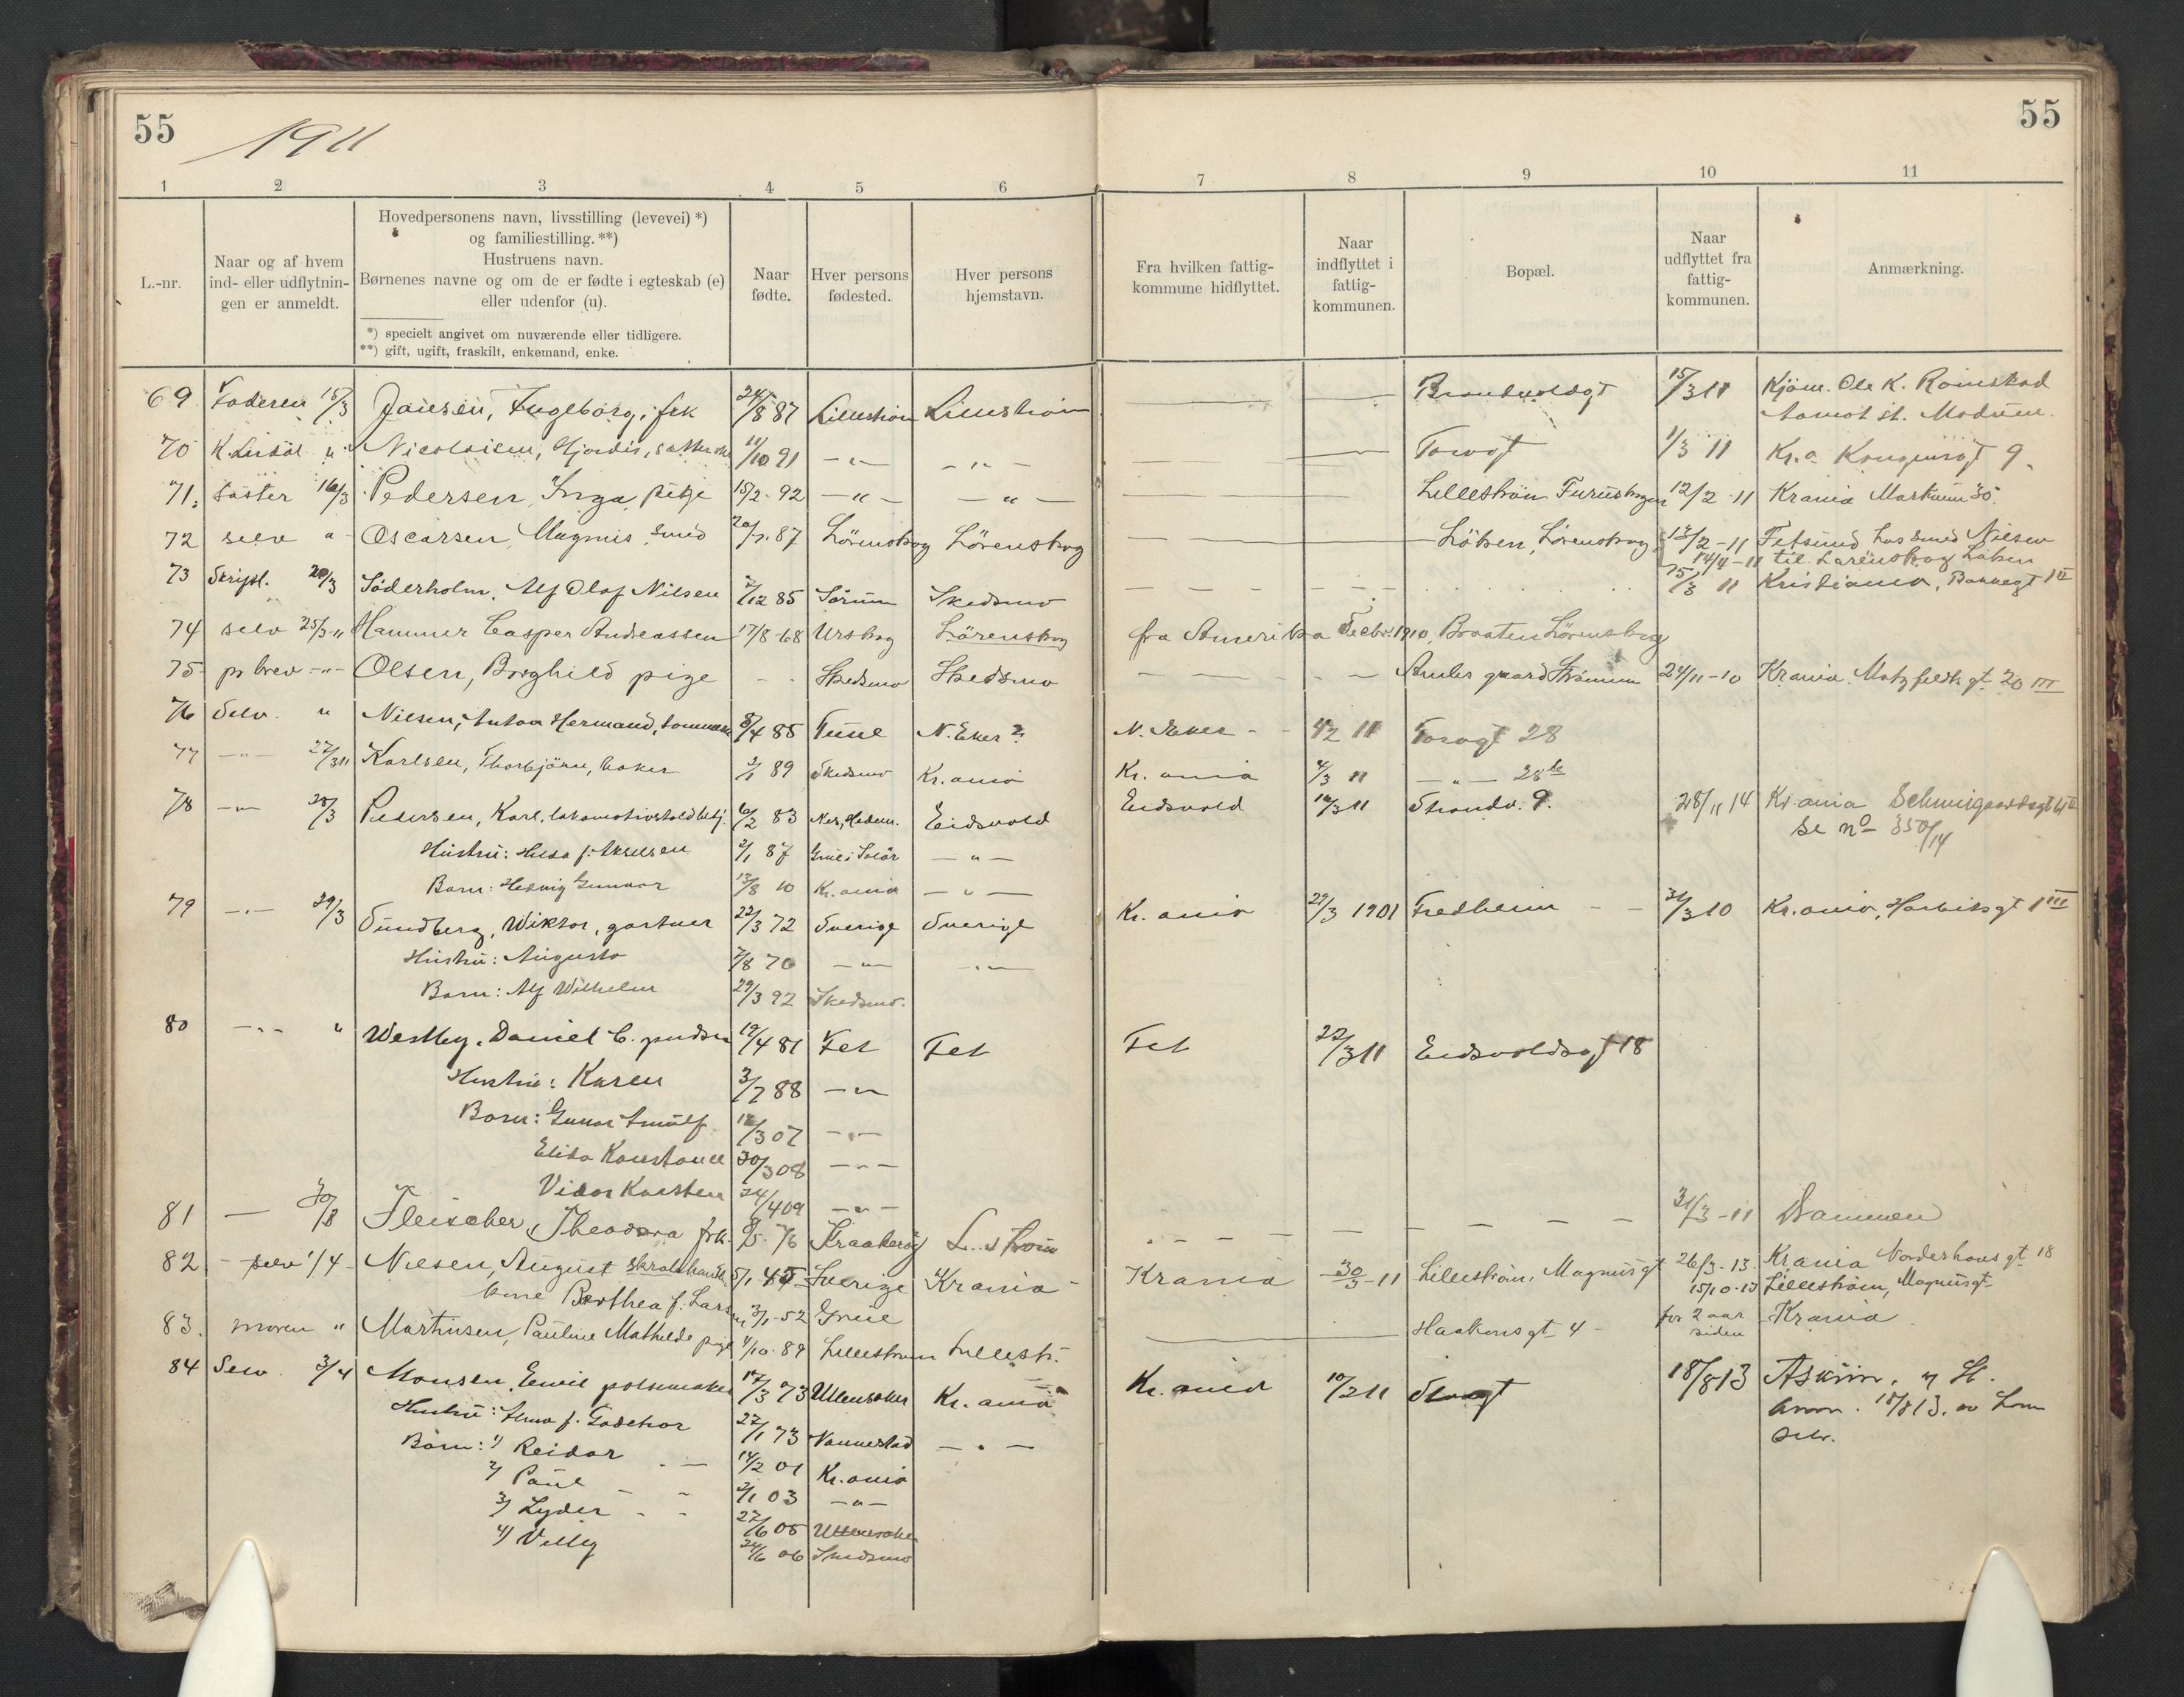 55
1911
55
1 2 3 4 5 6 7 8 9 10 11
L.-nr.
Naar og af hvem
ind- eller udflytnin-
gen er anmeldt.
Hovedpersonens navn, livsstilling (levevei) *)
og familiestilling. **)
Hustruens navn.
Børnenes navne og om de er fødte i egteskab (e)
eller udenfor (u).
*) specielt angivet om nuværende eller tidligere.
**) gift, ugift, fraskilt, enkemand, enke.
Naar
fødte.
Hver persons
fødested.
Hver persons
hjemstavn.
Fra hvilken fattig-
kommune hidflyttet.
Naar
indflyttet i
fattig-
kommunen.
Bopæl.
Naar
udflyttet fra
fattig-
kommunen.
Anmærkning.
69 Faderen 15/3 Jansen, Ingeborg, frk 24/8 87 Lillestrøm Lillestrøm — — 15/3 11 Ole K.
Aamot st. Modum.
70 " Nicolaisen, Hjordis, 11/10 91 — " — — " — — — Torvgt 1/3 11 Kr.a 9
71 söster 16/3 Pedersen, Inga, pige 15/2-92 — " — — " — — — Lilleström 12/2-11 Krania 30
72 selv " Oscarsen, Magnus, smed 87 Lörenskog Lörenskog — — Löken, Lörenskog /2-11 Fetsund hos smed Nilsen
14/4-11 til Lørenskog Løken
73 Skriftl. 20/3 Söderholm, Alf Olaf Nilsen 2/12 85 Sørum Skedsmo — — 15/3 11 Kristiania, Bakkegt
74 selv 25/3-11 Hammer Casper Andreassen 17/8-68 Urskog Lörenskog fra Amerika 1910 Braaten Lörenskog
75 pr brev -"- Olsen, Borghild pige - - Skedsmo Skedsmo — — gaard Strømmen 24/11-10 Krania 20 III
76 Selv. " Nilsen, Anton Hermand, 8/4 85 Tune N. Eker ? N. Eker - - 4/2 11 Torvgt 28
77 — " — 27/3 11 Karlsen, Thorbjörn, baker 2/1 89 Skedsmo Kr.ania Kr.ania 4/3 11 — " — 28 b
78 — " — 28/3 Pedersen, Karl, 6/2 83 Nes, Hedem. Eidsvold Eidsvold 3 11 Strandv. 9. 28/11 14 Kr.ania Schweigaardsgt
se no 350/14
Hustru: Hilda f. Akselsen 2/1 87 Grue i Solör — " —
Barn: Hedvig Gunvor 13/8 10 Kr.ania — " —
79 — " — 29/3 Sundberg, Wiktor, gartner 22/3 72 Sverige Sverige Kr.ania 29/3 1901 Fredheim - - 31/3 10 Kr.ania, 1 III
Hustru: Augusta 7/8 70 — " — — " —
Barn: Alf Wilhelm 29/3 92 Skedsmo.
80 — " — " Westby, Daniel C. 19/4 81 Fet Fet Fet 22/3 11 Eidsvoldsgt 18
Hustru: Karen 3/7 88 — " —
Barn: Gunnar 07 — " —
Elida Konstance 30/3 08 — " —
Vidar Karsten 24/4 09 — " —
81 — 30/3 Fleischer, Theodora frk. 76 Kraakerøy — — 31/3-11 Drammen
82 - selv 1/4 - Nilsen, August 5/1-45 Sverige Krania - Krania 30/3-11 Lilleström, Magnusgt 26/3-13. Krania Norderhovsgt 18
15/10-13 Lilleström, Magnusgt
kone Berthea f. Larsen 3/1-52 Grue
83. moren " Martinsen, Pauline Mathilde pige 4/10-89 Lillestrøm Lillestr. — Haakonsgt 4 - for 2 aar
siden Krania
84 Selv. 3/4 Monsen, Emil pølsemaker 17/3 73 Ullensaker Kr.ania Kr.ania 10/2 11 18/8 13 Askim,
18/8 13.
Hustru: f. 27/1 73 — " —
Børn: 1) Reidar 14/2 01 Kr.ania
2) Paul 2/1 03 — " —
3) Lyder 27/6 05 Ullensaker
4) Villy 24/6 06 Skedsmo